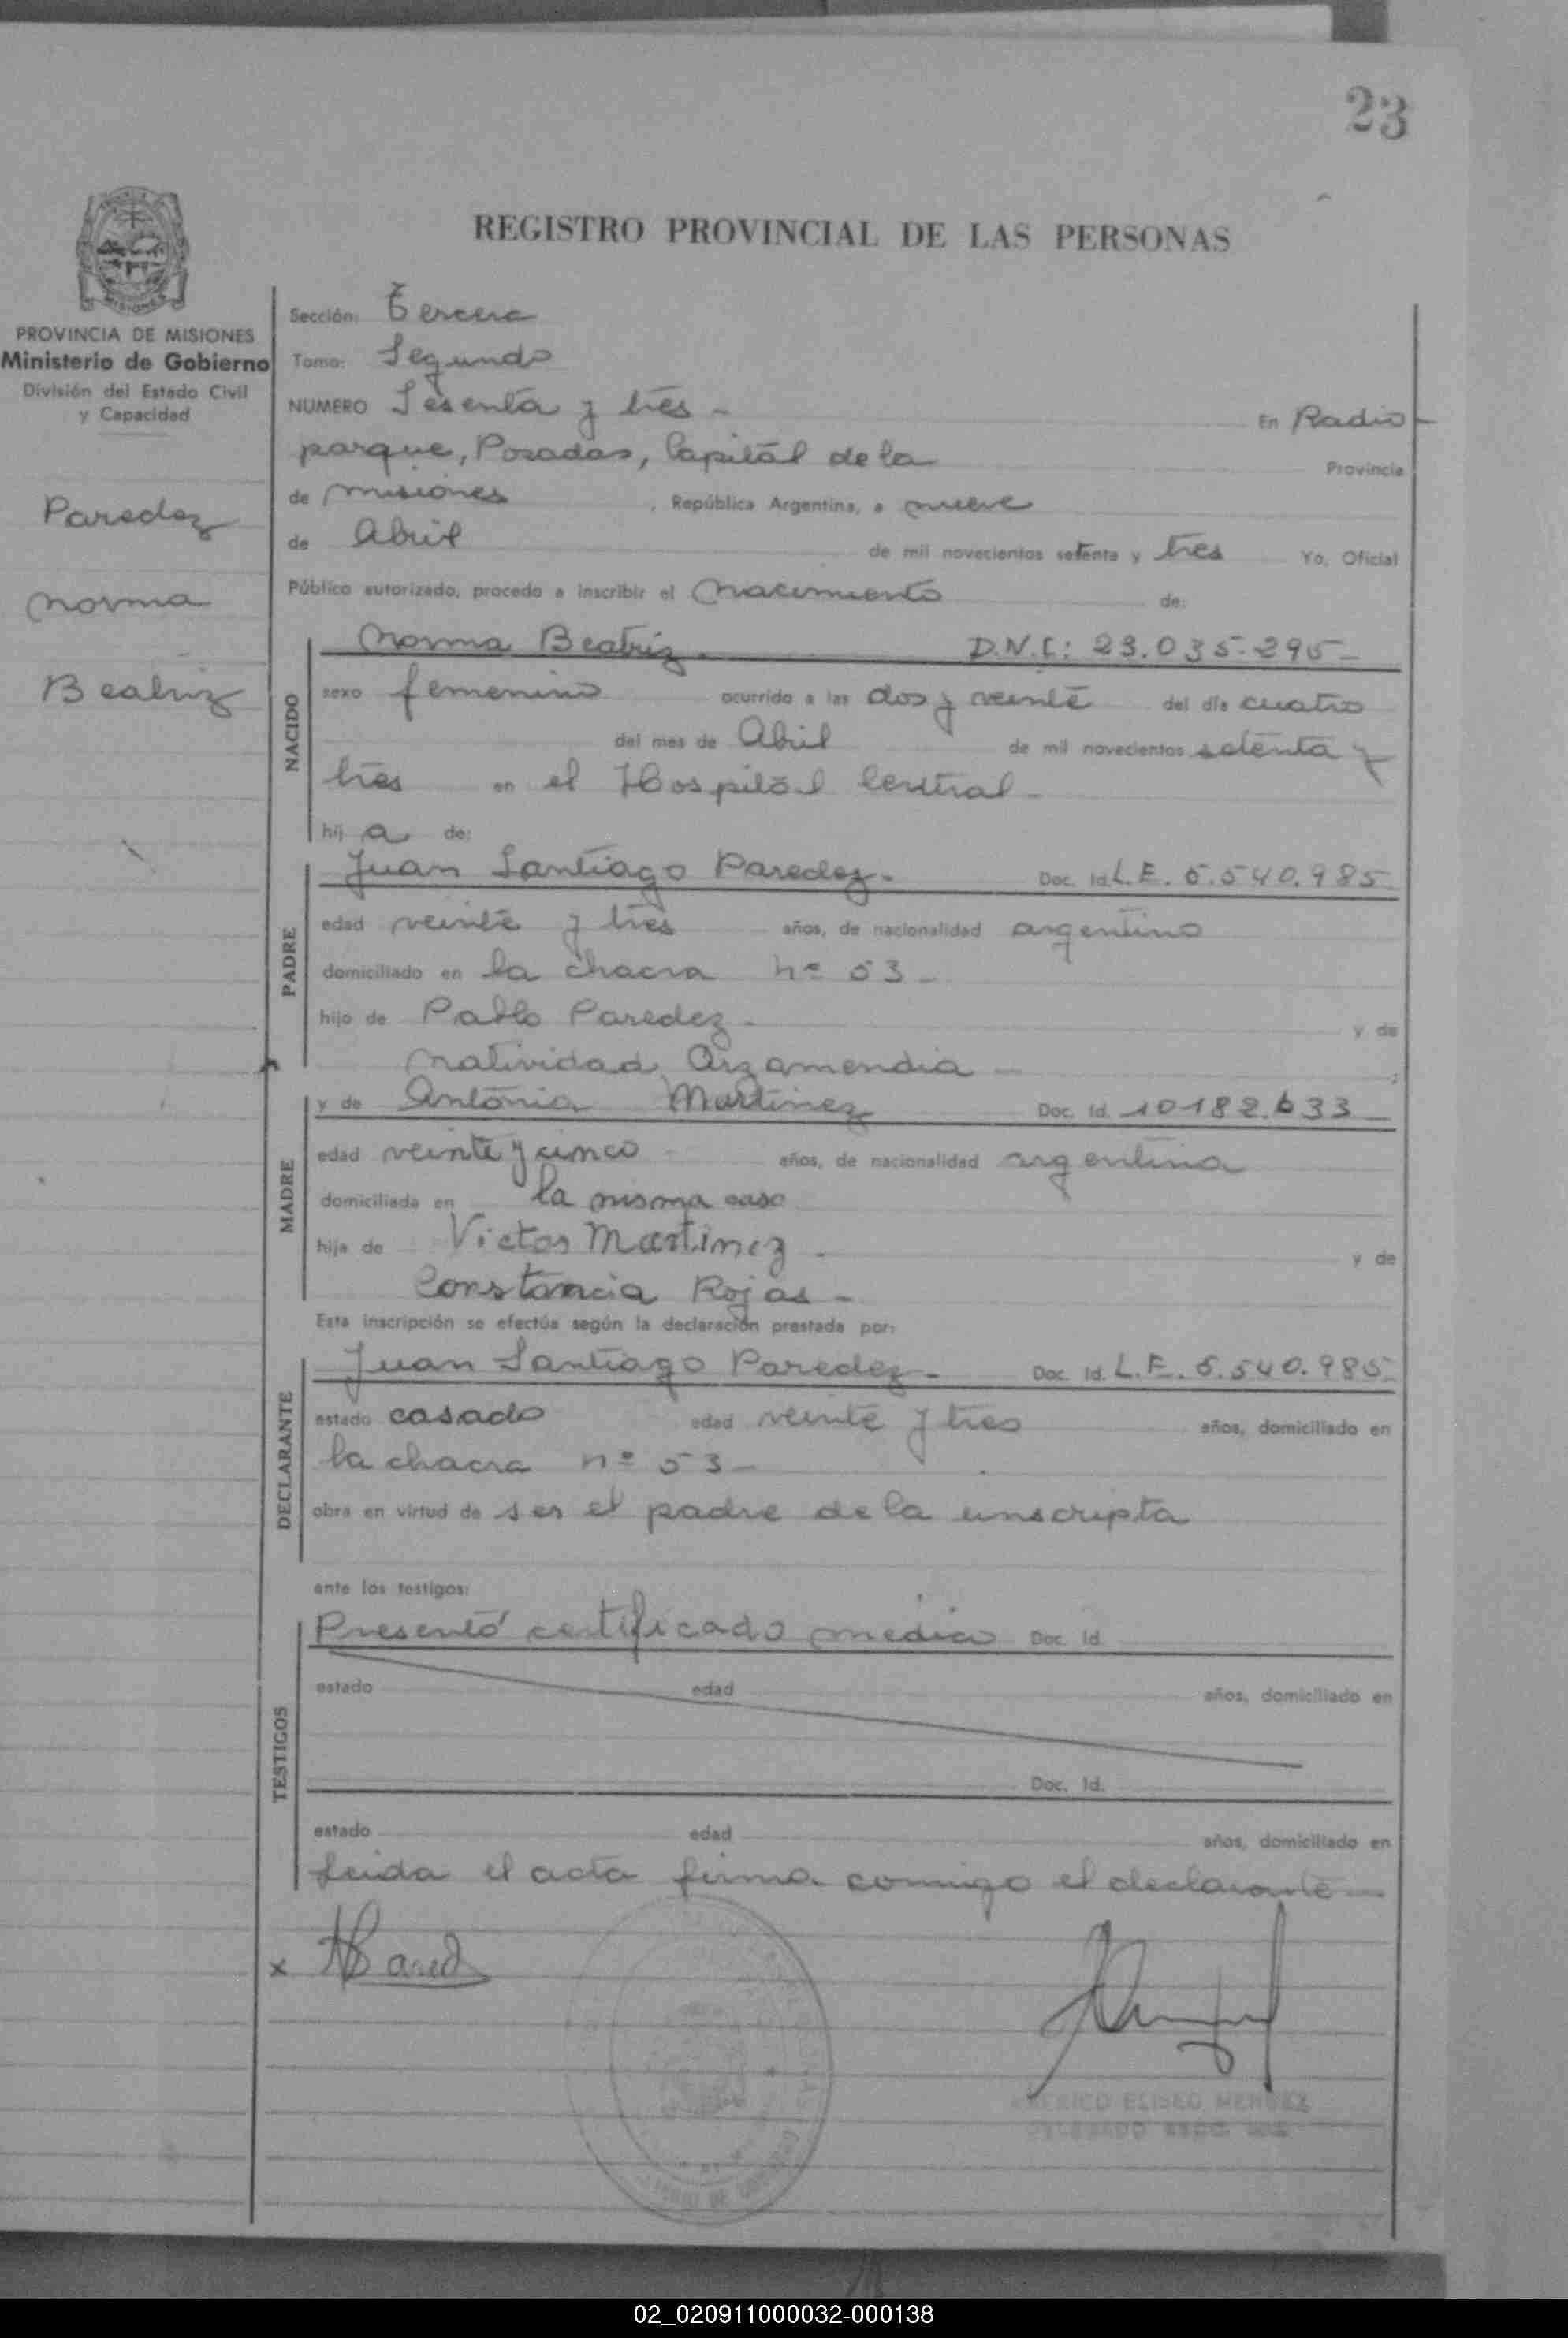 23
REGISTRO PROVINCIAL DE LAS PERSONAS
PROVINCIA DE MISIONES
Ministerio de Gobierno
División del Estado Civil
y Capacidad
Paredez
Norma
Beatriz
Sección: Tercera
Tomo: Segundo
NUMERO Sesenta y tres - En Radio
parque, Posadas, Capital de la Provincia
de Misiones, República Argentina, a nueve
de Abril de mil novecientos setenta y tres Yo, Oficial
Público autorizado, procedo a inscribir el Nacimiento de:
NACIDO
Norma Beatriz. D.N.I: 23.035.295-
sexo femenino ocurrido a las dos y veinte del día cuatro
del mes de Abril de mil novecientos setenta y
tres en el Hospital Central-
hij a de:
PADRE
Juan Santiago Paredez- Doc. Id. L.E. 5.540.985
edad veinte y tres años, de nacionalidad argentino
domiciliado en la chacra nº 53-
hijo de Pablo Paredez- y de
Natividad Arzamendia-
MADRE
y de Antonia Martinez Doc. Id. 10182.633-
edad veinte y cinco años, de nacionalidad argentina
domiciliada en la misma casa
hija de Victor Martinez. y de
Constancia Rojas-
Esta inscripción se efectúa según la declaración prestada por:
DECLARANTE
Juan Santiago Paredez- Doc. Id. L.E. 5.540.985
estado casado edad veinte y tres años, domiciliado en
la chacra nº 53-
obra en virtud de ser el padre de la inscripta
ante los testigos:
TESTIGOS
Presentó certificado medico Doc. Id.
estado edad años, domiciliado en
Doc. Id.
estado edad años, domiciliado en
Leida el acta firma conmigo el declarante-
x
ELISEO MENDEZ
02_020911000032-000138